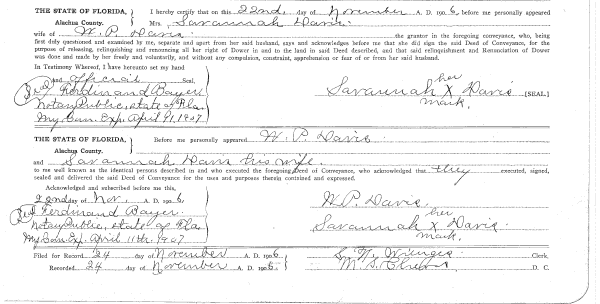 THE STATE OF FLORIDA, I hereby certify that on this 22nd, day of November A. D. 190 6, before me personally appeared
Alachua County. Mrs. Savannah Davis
wife of W. P. Davis the grantor in the foregoing conveyance, who, being
first duly questioned and examined by me, separate and apart from her said husband, says and acknowledges before me that she did sign the said Deed of Conveyance, for the
purpose of releasing, relinquishing and renouncing all her right of Dower in and to the land in said Deed described, and that said relinquishment and Renunciation of Dower
was done and made by her freely and voluntarily, and without any compulsion, constraint, apprehension or fear of or from her said husband.
In Testimony Whereof, I have hereunto set my hand
and official Seal,
Seal Ferdinand Bayer
Notary Public, State of Fla.
My Com. Exp. April 1907
her
Savannah X Davis [SEAL]
mark.
THE STATE OF FLORIDA, Before me personally appeared W. P. Davis
Alachua County.
and Savannah Davis his wife.
to me well known as the identical persons described in and who executed the foregoing Deed of Conveyance, who acknowledged that they executed, signed,
sealed and delivered the said Deed of Conveyance for the uses and purposes therein contained and expressed.
Acknowledged and subscribed before me this,
22nd day of Nov. A. D. 190 6,
Seal Ferdinand Bayer.
Notary Public, State of Fla
My Com Exp. April 11th. 1907
W. P. Davis
her
Savannah X Davis.
mark.
Filed for Record 24 day of November A. D. 190 6 Clerk.
Recorded 24 day of November A. D. 190 6. D. C.